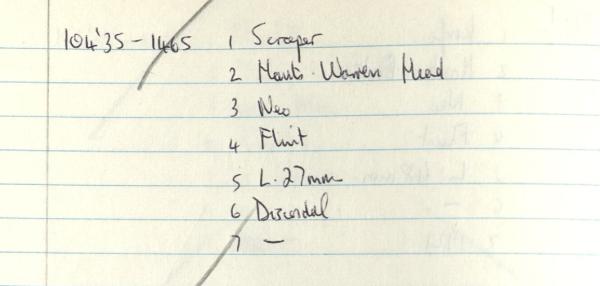 104'35 - 1465 1 Scraper
2 Hants. Warren Mead
3 Neo
4 Flint
5 L. 27mm
6 Discoidal
7 —